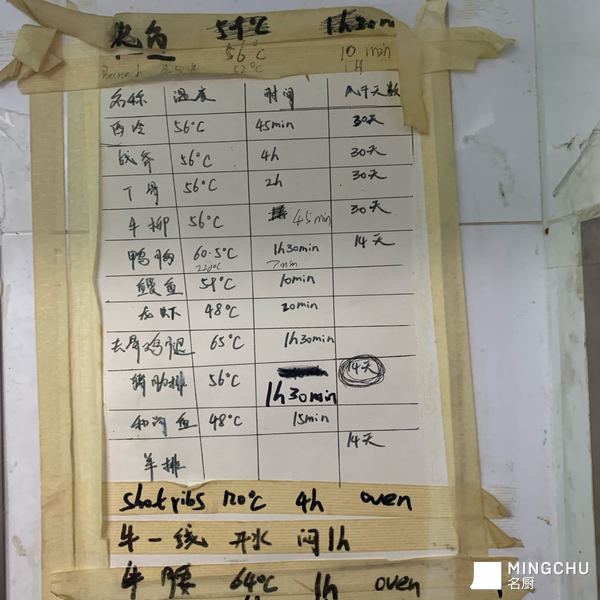 龙鱼 54°C 1h30m
56°C 10 min
52°C 1H
名称 温度 时间 风干天数
西冷 56°C 45min 30天
战斧 56°C 4h 30天
丁骨 56°C 2h 30天
牛柳 56°C 45min 30天
鸭胸 60.5°C 1h30min 14天
220°C 7min
鳗鱼 58°C 10min
龙虾 48°C 20min
去骨鸡腿 65°C 1h30min
猪肋排 56°C 1h30min 14天
和沟鱼 48°C 15min
羊排 14天
shotribs 120°C 4h oven
牛一线 开水 闷1h
牛腰 64°C 1h oven
MINGCHU
名厨